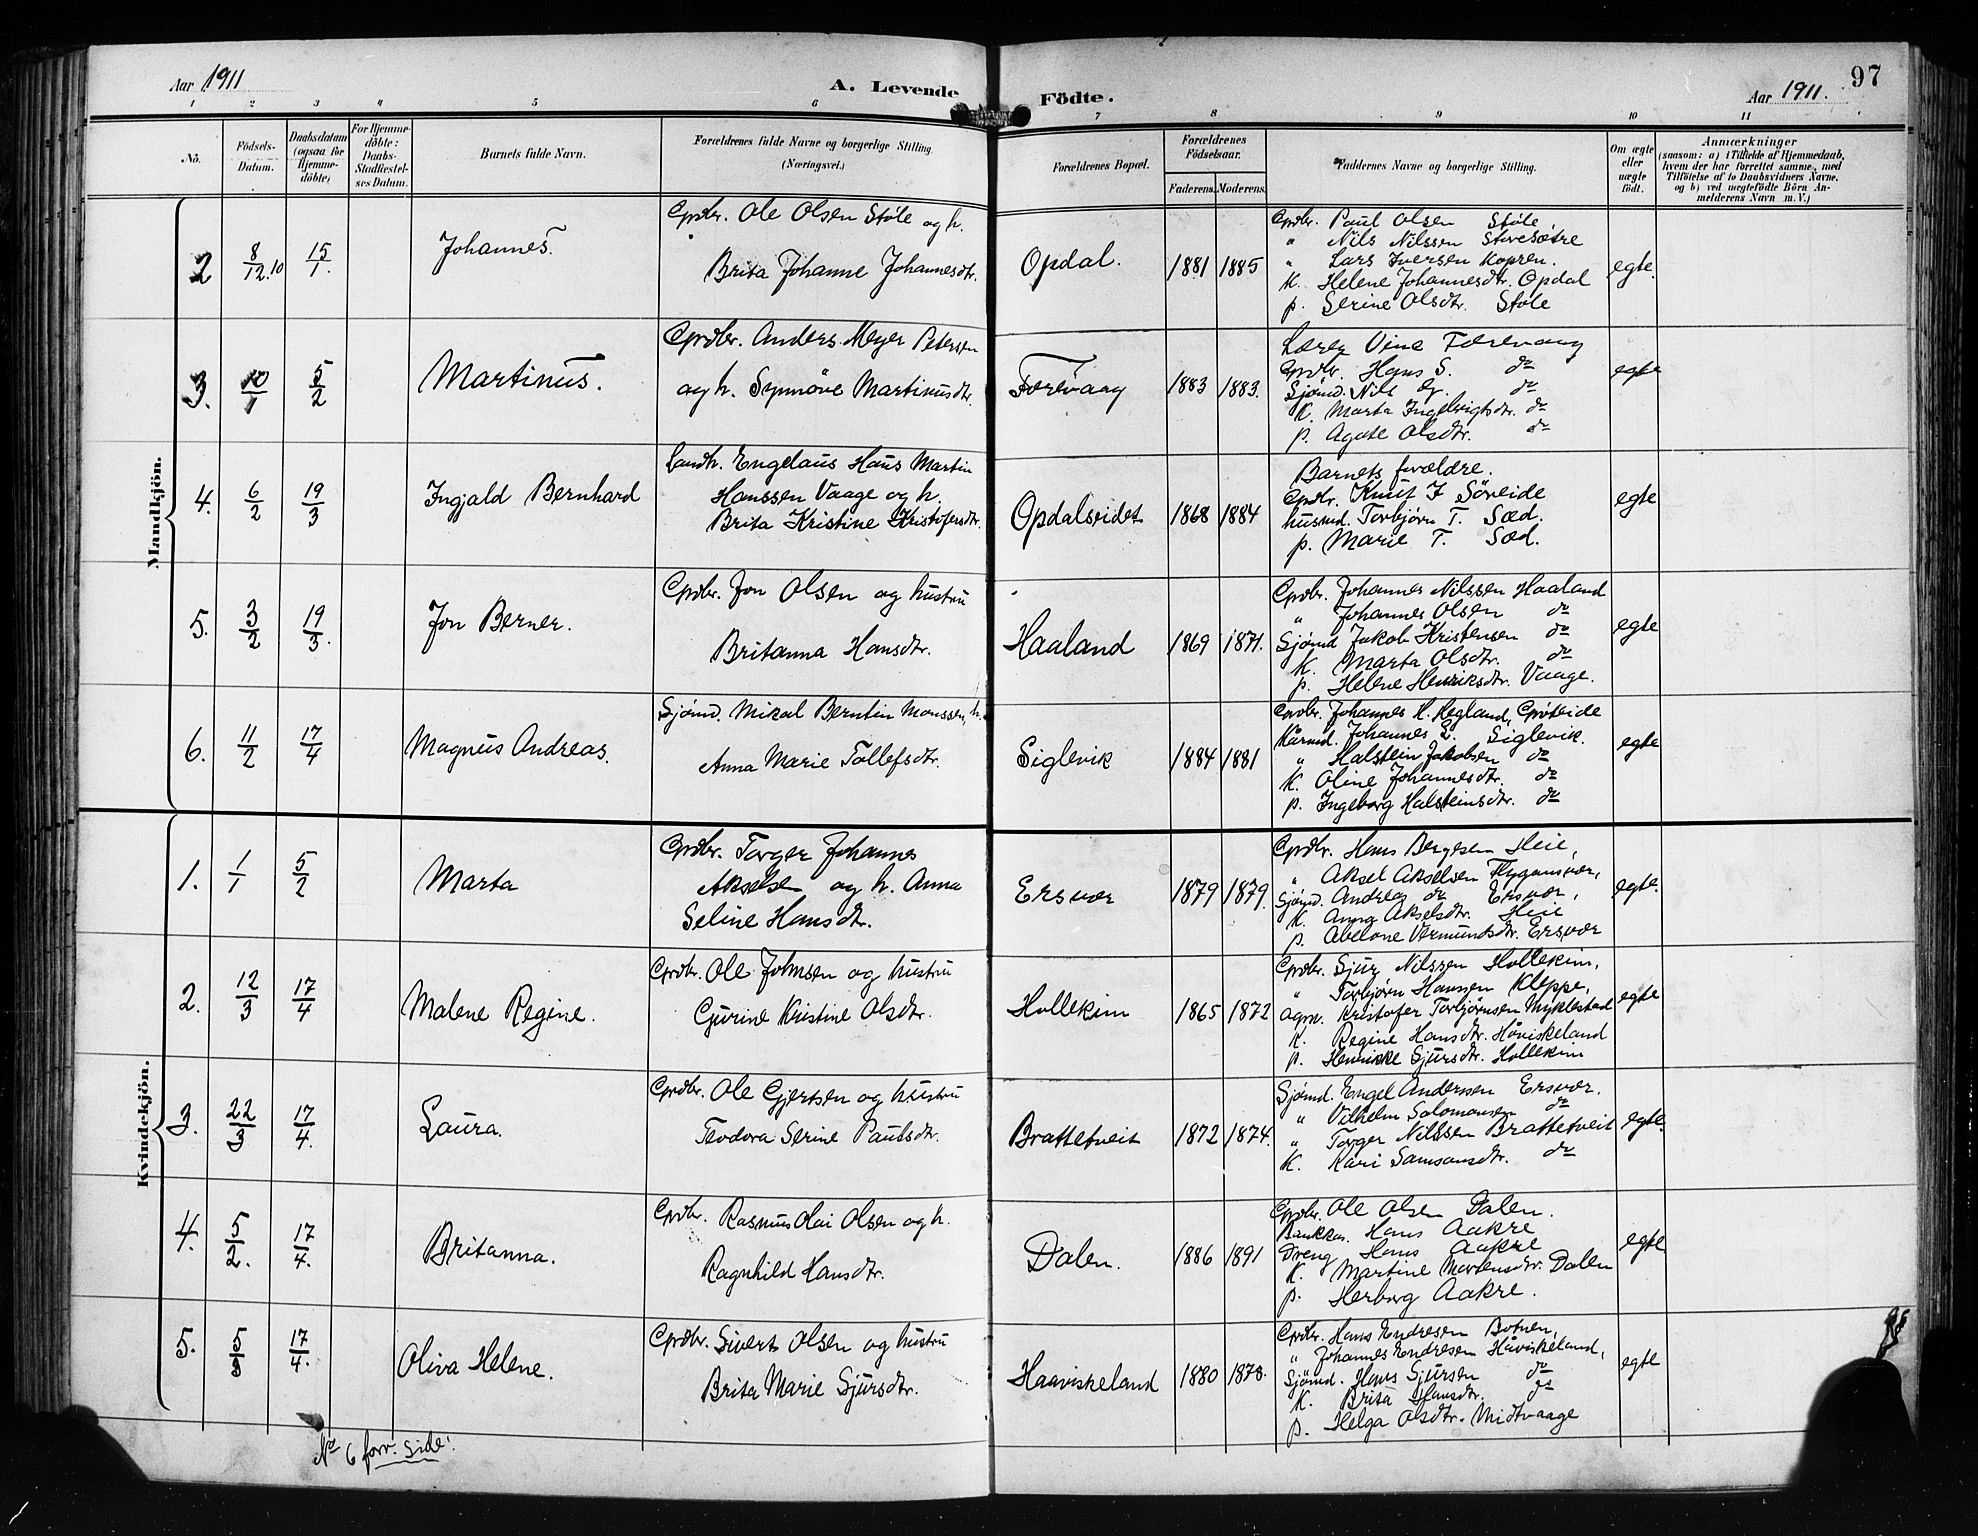 Aar 1911
A. Levende
Födte.
Aar 1911.
97
1 2 3 4 5 6 7 8 9 10 11
No.
Födsels-
Datum.
Daabsdatum
(ogsaa for
Hjemme-
döbte)
For Hjemme-
döbte:
Daabs-
Stadfæstel-
ses Datum.
Barnets fulde Navn.
Forældrenes fulde Navne og borgerlige Stilling.
(Næringsvei.)
Forældrenes Bopæl.
Forældrenes
Födselsaar.
Faderens. Moderens.
Faddernes Navne og borgerlige Stilling.
Om ægte
eller
uægte
födt.
Anmærkninger
(saasom: a) i Tilfælde af Hjemmedaab,
hvem der har forrettet samme, med
Tilföielse af to Daabsvidners Navne,
og b) ved uægtefödte Börn An-
melderens Navn m. V.)
Mandkjön.
2 8/12.10 15/1. Johannes.
Grdbr. Ole Olsen Støle og h.
Brita Johanne Johannesdtr.
Opdal. 1881 1885
Grdbr. Paul Olsen Støle
" Nils Nilssen Storesætre
" Lars Iversen Kopren.
K. Helene Johannesdtr. Opdal
p. Serine Olsdtr. Støle
egte.
3. 10/1 5/2 Martinus.
Grdbr. Anders Meyer Petersen
og h. Synnöve Martinusdtr.
Færevaag 1883 1883.
Lærer Vine Færevaag
Grdbr. Hans S. do
Sjömd. Nils do
K. Marta Ingebrigtsdtr. do
p. Agate Olsdtr. do
egte
4. 6/2 19/3 Ingjald Bernhard
Landh. Engelaus Haus Martin
Hanssen Vaage og h.
Brita Kristine Kristofersdtr.
Opdalseidet 1868 1884
Barnets forældre.
Grdbr. Knut I Söreide
husmd. Torbjörn T. Sæd.
p. Marie T. Sæd.
egte
5. 3/2 19/3. Jon Berner.
Grdbr. Jon Olsen og hustru
Britanna Hansdtr.
Haaland 1869 1871.
Grdbr. Johannes Nilssen Haaland
" Johannes Olsen do
Sjömd Jakob Kristensen do
K. Marta Olsdtr. do
p. Helene Henriksdtr. Vaage.
egte
6. 11/2 17/4 Magnus Andreas.
Sjömd. Mikal Berntin Monssen, h.
Anna Marie Tollefsdtr.
Siglevik 1884 1881
Grdbr. Johannes H. Hegland,
Kårmd. Johannes L. Siglevik.
" Halstein Jakobsen do
K. Oline Johannesdtr. do
p. Ingeborg Halsteinsdtr. do
egte
Kvindekjön.
1. 1/1 5/2 Marta
Grdbr. Torger Johannes
Akselsen og h. Anna
Seline Hansdtr.
Ersvær 1879 1879.
Grdbr. Hans Bergesen Heie,
" Aksel Akselsen Flygansvær,
Sjömd. Andreas do Ersvær,
K. Anna Akselsdtr. Heie
p. Abelone Vermundsdtr. Ersvær
egte.
2. 12/3 17/4 Malene Regine.
Grdbr. Ole Johnsen og hustru
Gjurine Kristine Olsdtr.
Hollekim 1865 1872
Grdbr. Sjur Nilssen Hollekim,
" Torbjörn Hanssen Kleppe,
agm. Kristofer Torbjörnsen Myklestad
K. Regine Hansdtr. Håviskeland
p. Henrikke Sjursdtr. Hollekim
egte
3. 22/3 17/4. Laura.
Grdbr. Ole Gjertsen og hustru
Teodora Serine Paulsdtr.
Brattetveit 1872 1874.
Sjömd. Engel Anderssen Ersvær.
" Vilhelm Salomonsen do
" Torger Nilssen Brattetveit
K. Kari Samsonsdtr. do
egte.
4. 5/2. 17/4. Britanna.
Grdbr. Rasmus Olai Olsen og h.
Ragnhild Hansdtr.
Dalen. 1886 1891
Grdbr. Ole Olsen Dalen.
Hans Aakre
Dreng Hans Aakre
K. Martine Mortensdtr. Dalen
p. Herborg Aakre.
egte
5. 5/3 17/4. Oliva Helene.
Grdbr. Sivert Olsen og hustru
Brita Marie Sjursdtr.
Haaviskeland 1880 1878.
Grdbr. Hans Endresen Botnen,
" Johannes Endresen Håviskeland,
Sjömd. Hans Sjursen do
K. Brita Hansdtr. do
p. Helga Olsdtr. Midtvaage
egte
No 6 forr. side.